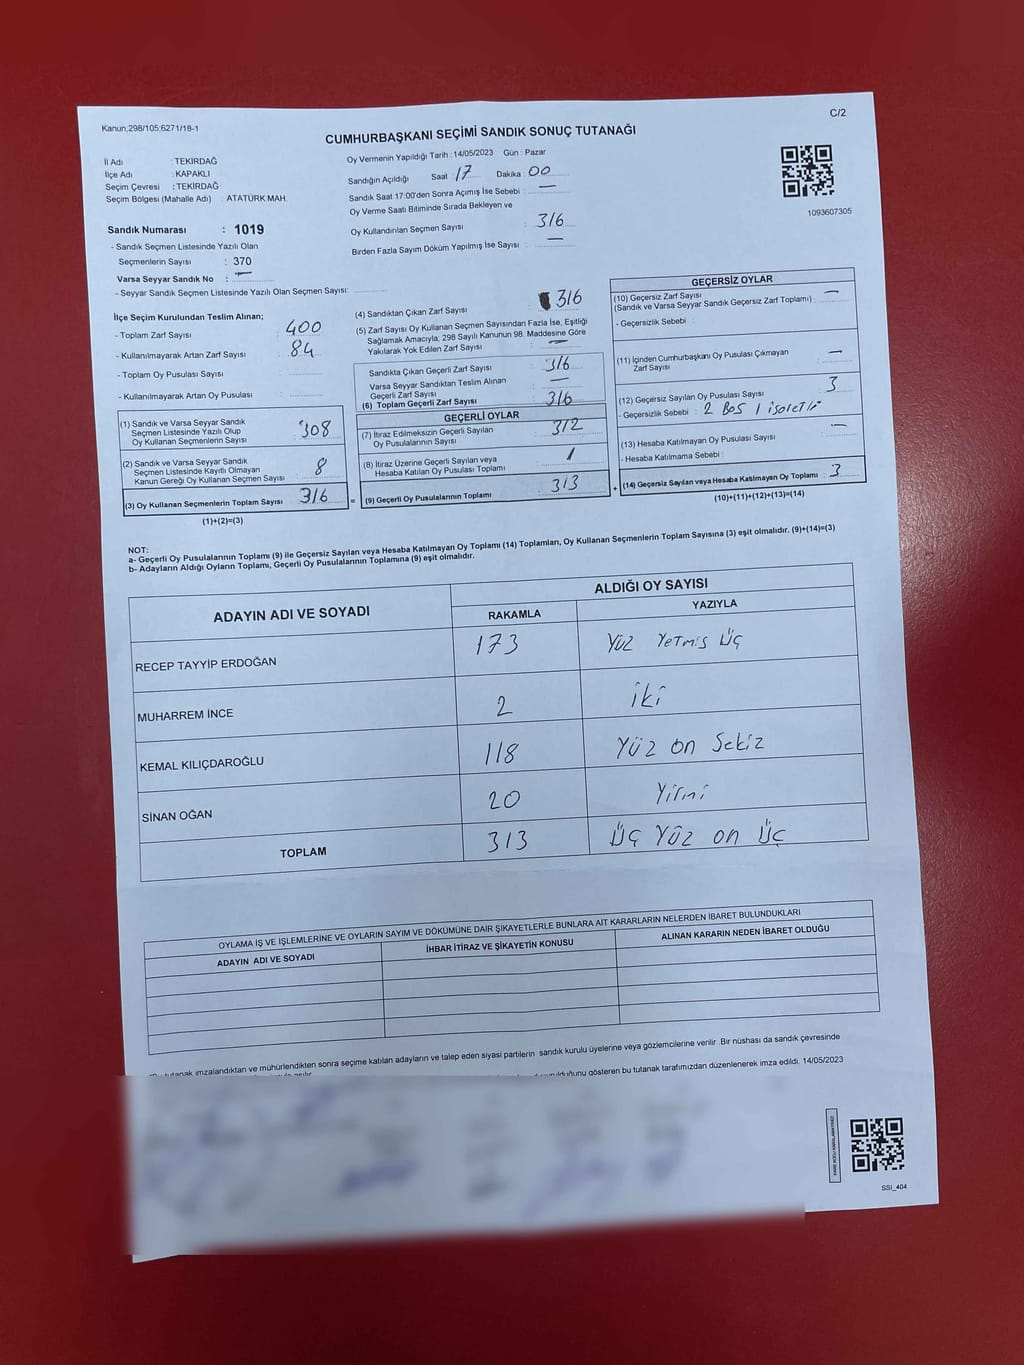 Kanun;298/105;6271/18-1
C/2
CUMHURBAŞKANI SEÇİMİ SANDIK SONUÇ TUTANAĞI
İl Adı : TEKİRDAĞ
İlçe Adı : KAPAKLI
Seçim Çevresi : TEKİRDAĞ
Seçim Bölgesi (Mahalle Adı) : ATATÜRK MAH.
Sandık Numarası : 1019
- Sandık Seçmen Listesinde Yazılı Olan
Seçmenlerin Sayısı : 370
Varsa Seyyar Sandık No : —
- Seyyar Sandık Seçmen Listesinde Yazılı Olan Seçmen Sayısı:
Oy Vermenin Yapıldığı Tarih : 14/05/2023 Gün : Pazar
Sandığın Açıldığı Saat : 17 Dakika : 00
Sandık Saat 17:00'den Sonra Açımış İse Sebebi : —
Oy Verme Saati Bitiminde Sırada Bekleyen ve
Oy Kullandırılan Seçmen Sayısı : 316
Birden Fazla Sayım Döküm Yapılmış İse Sayısı : —
1093607305
İlçe Seçim Kurulundan Teslim Alınan;
- Toplam Zarf Sayısı : 400
- Kullanılmayarak Artan Zarf Sayısı : 84
- Toplam Oy Pusulası Sayısı :
- Kullanılmayarak Artan Oy Pusulası :
(1) Sandık ve Varsa Seyyar Sandık
Seçmen Listesinde Yazılı Olup
Oy Kullanan Seçmenlerin Sayısı : 308
(2) Sandık ve Varsa Seyyar Sandık
Seçmen Listesinde Kayıtlı Olmayan
Kanun Gereği Oy Kullanan Seçmen Sayısı : 8
(3) Oy Kullanan Seçmenlerin Toplam Sayısı : 316
(1)+(2)=(3)
(4) Sandıktan Çıkan Zarf Sayısı : 316
(5) Zarf Sayısı Oy Kullanan Seçmen Sayısından Fazla İse, Eşitliği
Sağlamak Amacıyla, 298 Sayılı Kanunun 98. Maddesine Göre
Yakılarak Yok Edilen Zarf Sayısı : —
Sandıkta Çıkan Geçerli Zarf Sayısı : 316
Varsa Seyyar Sandıktan Teslim Alınan
Geçerli Zarf Sayısı : —
(6) Toplam Geçerli Zarf Sayısı : 316
GEÇERLİ OYLAR
(7) İtiraz Edilmeksizin Geçerli Sayılan
Oy Pusulalarının Sayısı : 312
(8) İtiraz Üzerine Geçerli Sayılan veya
Hesaba Katılan Oy Pusulası Toplamı : 1
= (9) Geçerli Oy Pusulalarının Toplamı : 313
GEÇERSİZ OYLAR
(10) Geçersiz Zarf Sayısı
(Sandık ve Varsa Seyyar Sandık Geçersiz Zarf Toplamı) : —
- Geçersizlik Sebebi :
(11) İçinden Cumhurbaşkanı Oy Pusulası Çıkmayan
Zarf Sayısı : —
(12) Geçersiz Sayılan Oy Pusulası Sayısı : 3
- Geçersizlik Sebebi : 2 BoS 1 isaretli
(13) Hesaba Katılmayan Oy Pusulası Sayısı : —
- Hesaba Katılmama Sebebi :
+ (14) Geçersiz Sayılan veya Hesaba Katılmayan Oy Toplamı : 3
(10)+(11)+(12)+(13)=(14)
NOT:
a- Geçerli Oy Pusulalarının Toplamı (9) ile Geçersiz Sayılan veya Hesaba Katılmayan Oy Toplamı (14) Toplamları, Oy Kullanan Seçmenlerin Toplam Sayısına (3) eşit olmalıdır. (9)+(14)=(3)
b- Adayların Aldığı Oyların Toplamı, Geçerli Oy Pusulalarının Toplamına (9) eşit olmalıdır.
ADAYIN ADI VE SOYADI
ALDIĞI OY SAYISI
RAKAMLA YAZIYLA
RECEP TAYYİP ERDOĞAN 173 Yüz Yetmiş Üç
MUHARREM İNCE 2 iki
KEMAL KILIÇDAROĞLU 118 Yüz on Sekiz
SİNAN OĞAN 20 Yirmi
TOPLAM 313 Üç Yüz on Üç
OYLAMA İŞ VE İŞLEMLERİNE VE OYLARIN SAYIM VE DÖKÜMÜNE DAİR ŞİKAYETLERLE BUNLARA AİT KARARLARIN NELERDEN İBARET BULUNDUKLARI
ADAYIN ADI VE SOYADI İHBAR İTİRAZ VE ŞİKAYETİN KONUSU ALINAN KARARIN NEDEN İBARET OLDUĞU
tutanak imzalandıktan ve mühürlendikten sonra seçime katılan adayların ve talep eden siyasi partilerin sandık kurulu üyelerine veya gözlemcilerine verilir. Bir nüshası da sandık çevresinde
gösteren bu tutanak tarafımızdan düzenlenerek imza edildi. 14/05/2023
SSI_404